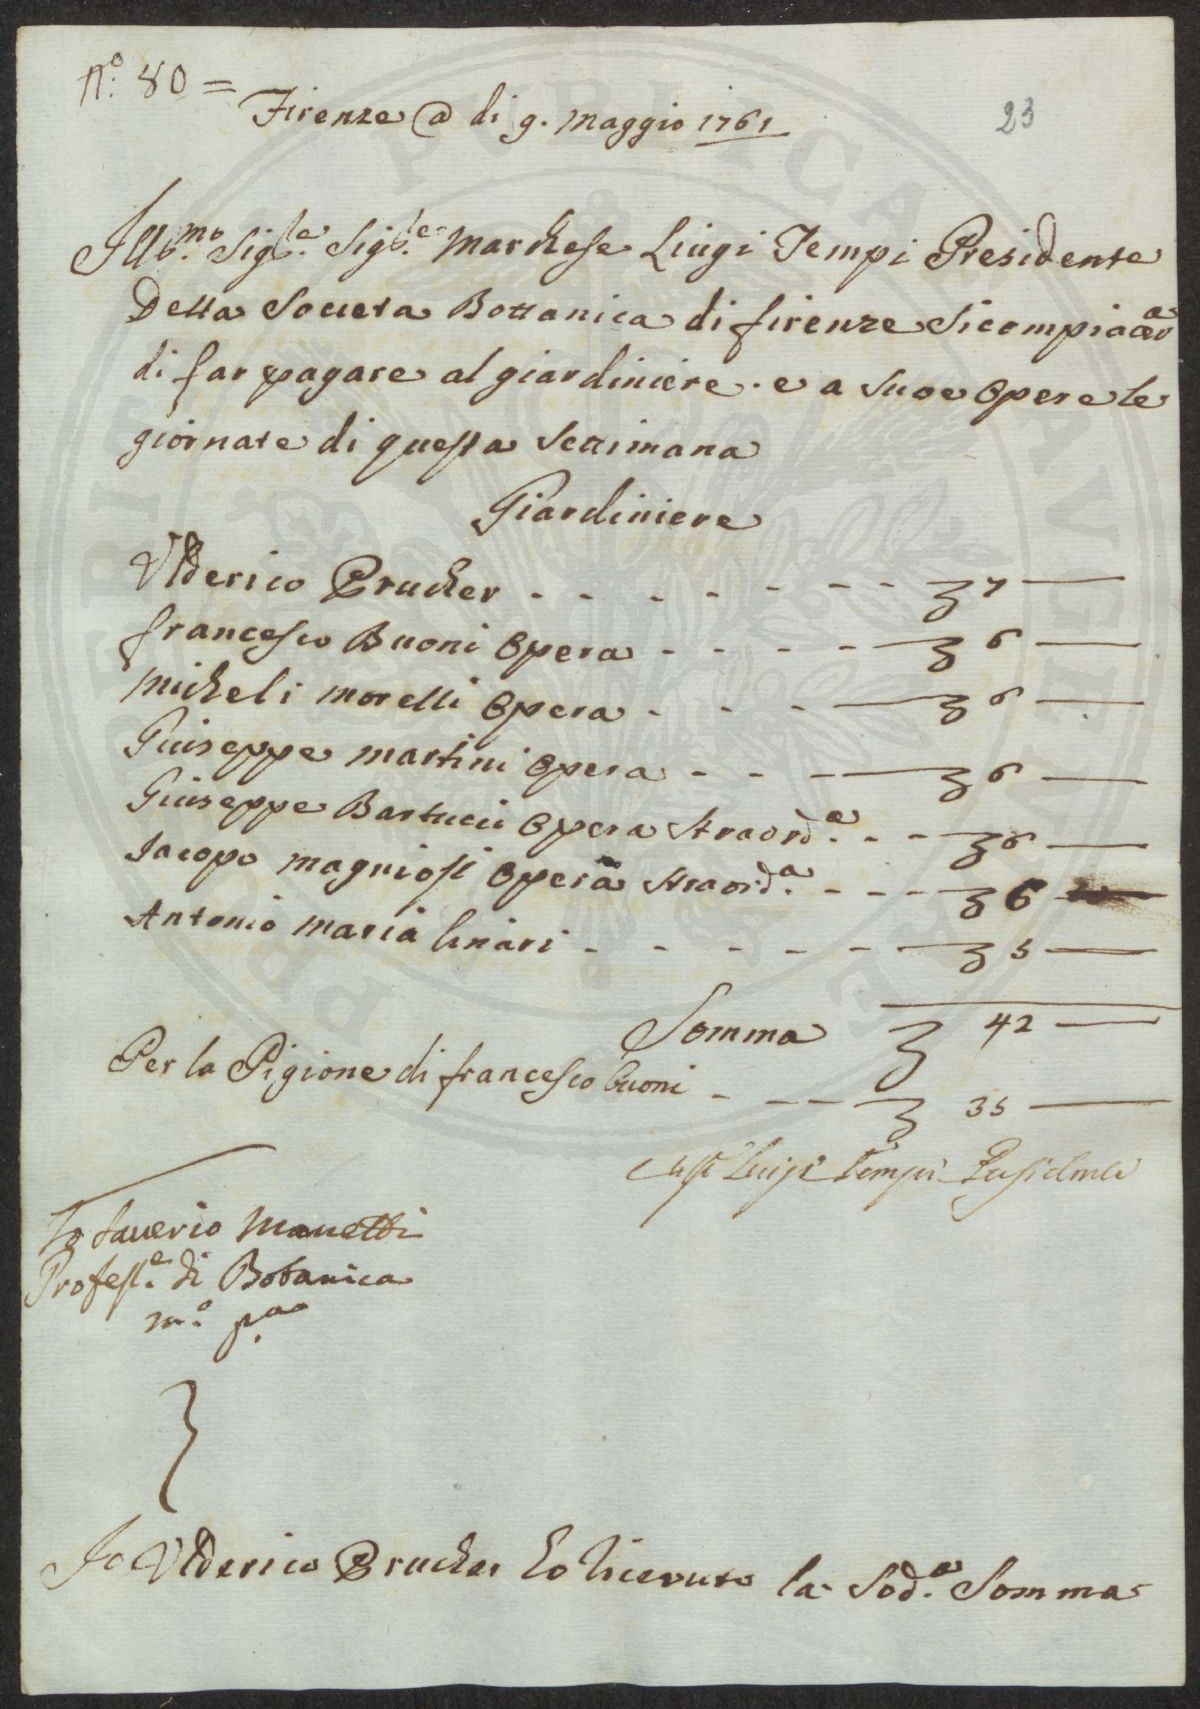 N.o 80 =
23
Firenze @ di 9. Maggio 1761
Ill.mo Sig.re Sig.re Marchese Luigi Tempi Presidente
Della Societa Bottanica di firenze Si compiacera
di far pagare al giardiniere. e a Suoe Opere le
giornate di questa Settimana
Giardiniere
Ulderico Prucker - - - - - - - 7 —
francesco Buoni Opera - - - - 6 —
Micheli Morelli Opera - - - 6 —
Giuseppe Martini Opera - - - 6 —
Giuseppe Bartucci Opera Straord.a - - - 6 —
Jacopo Magniosi Opera Straord.a - - - 6 —
Antonio Maria linari - - - - - - 5 —
Somma 42 —
Per la Pigione di francesco buoni - - - 35 —
Luigi Tempi Presidente
Io Saverio Manetti
Profess.e di Botanica
m.o p.a
Io Ulderico Prucker ho Riceuuto la Sod.a Somma
PUBLICAE